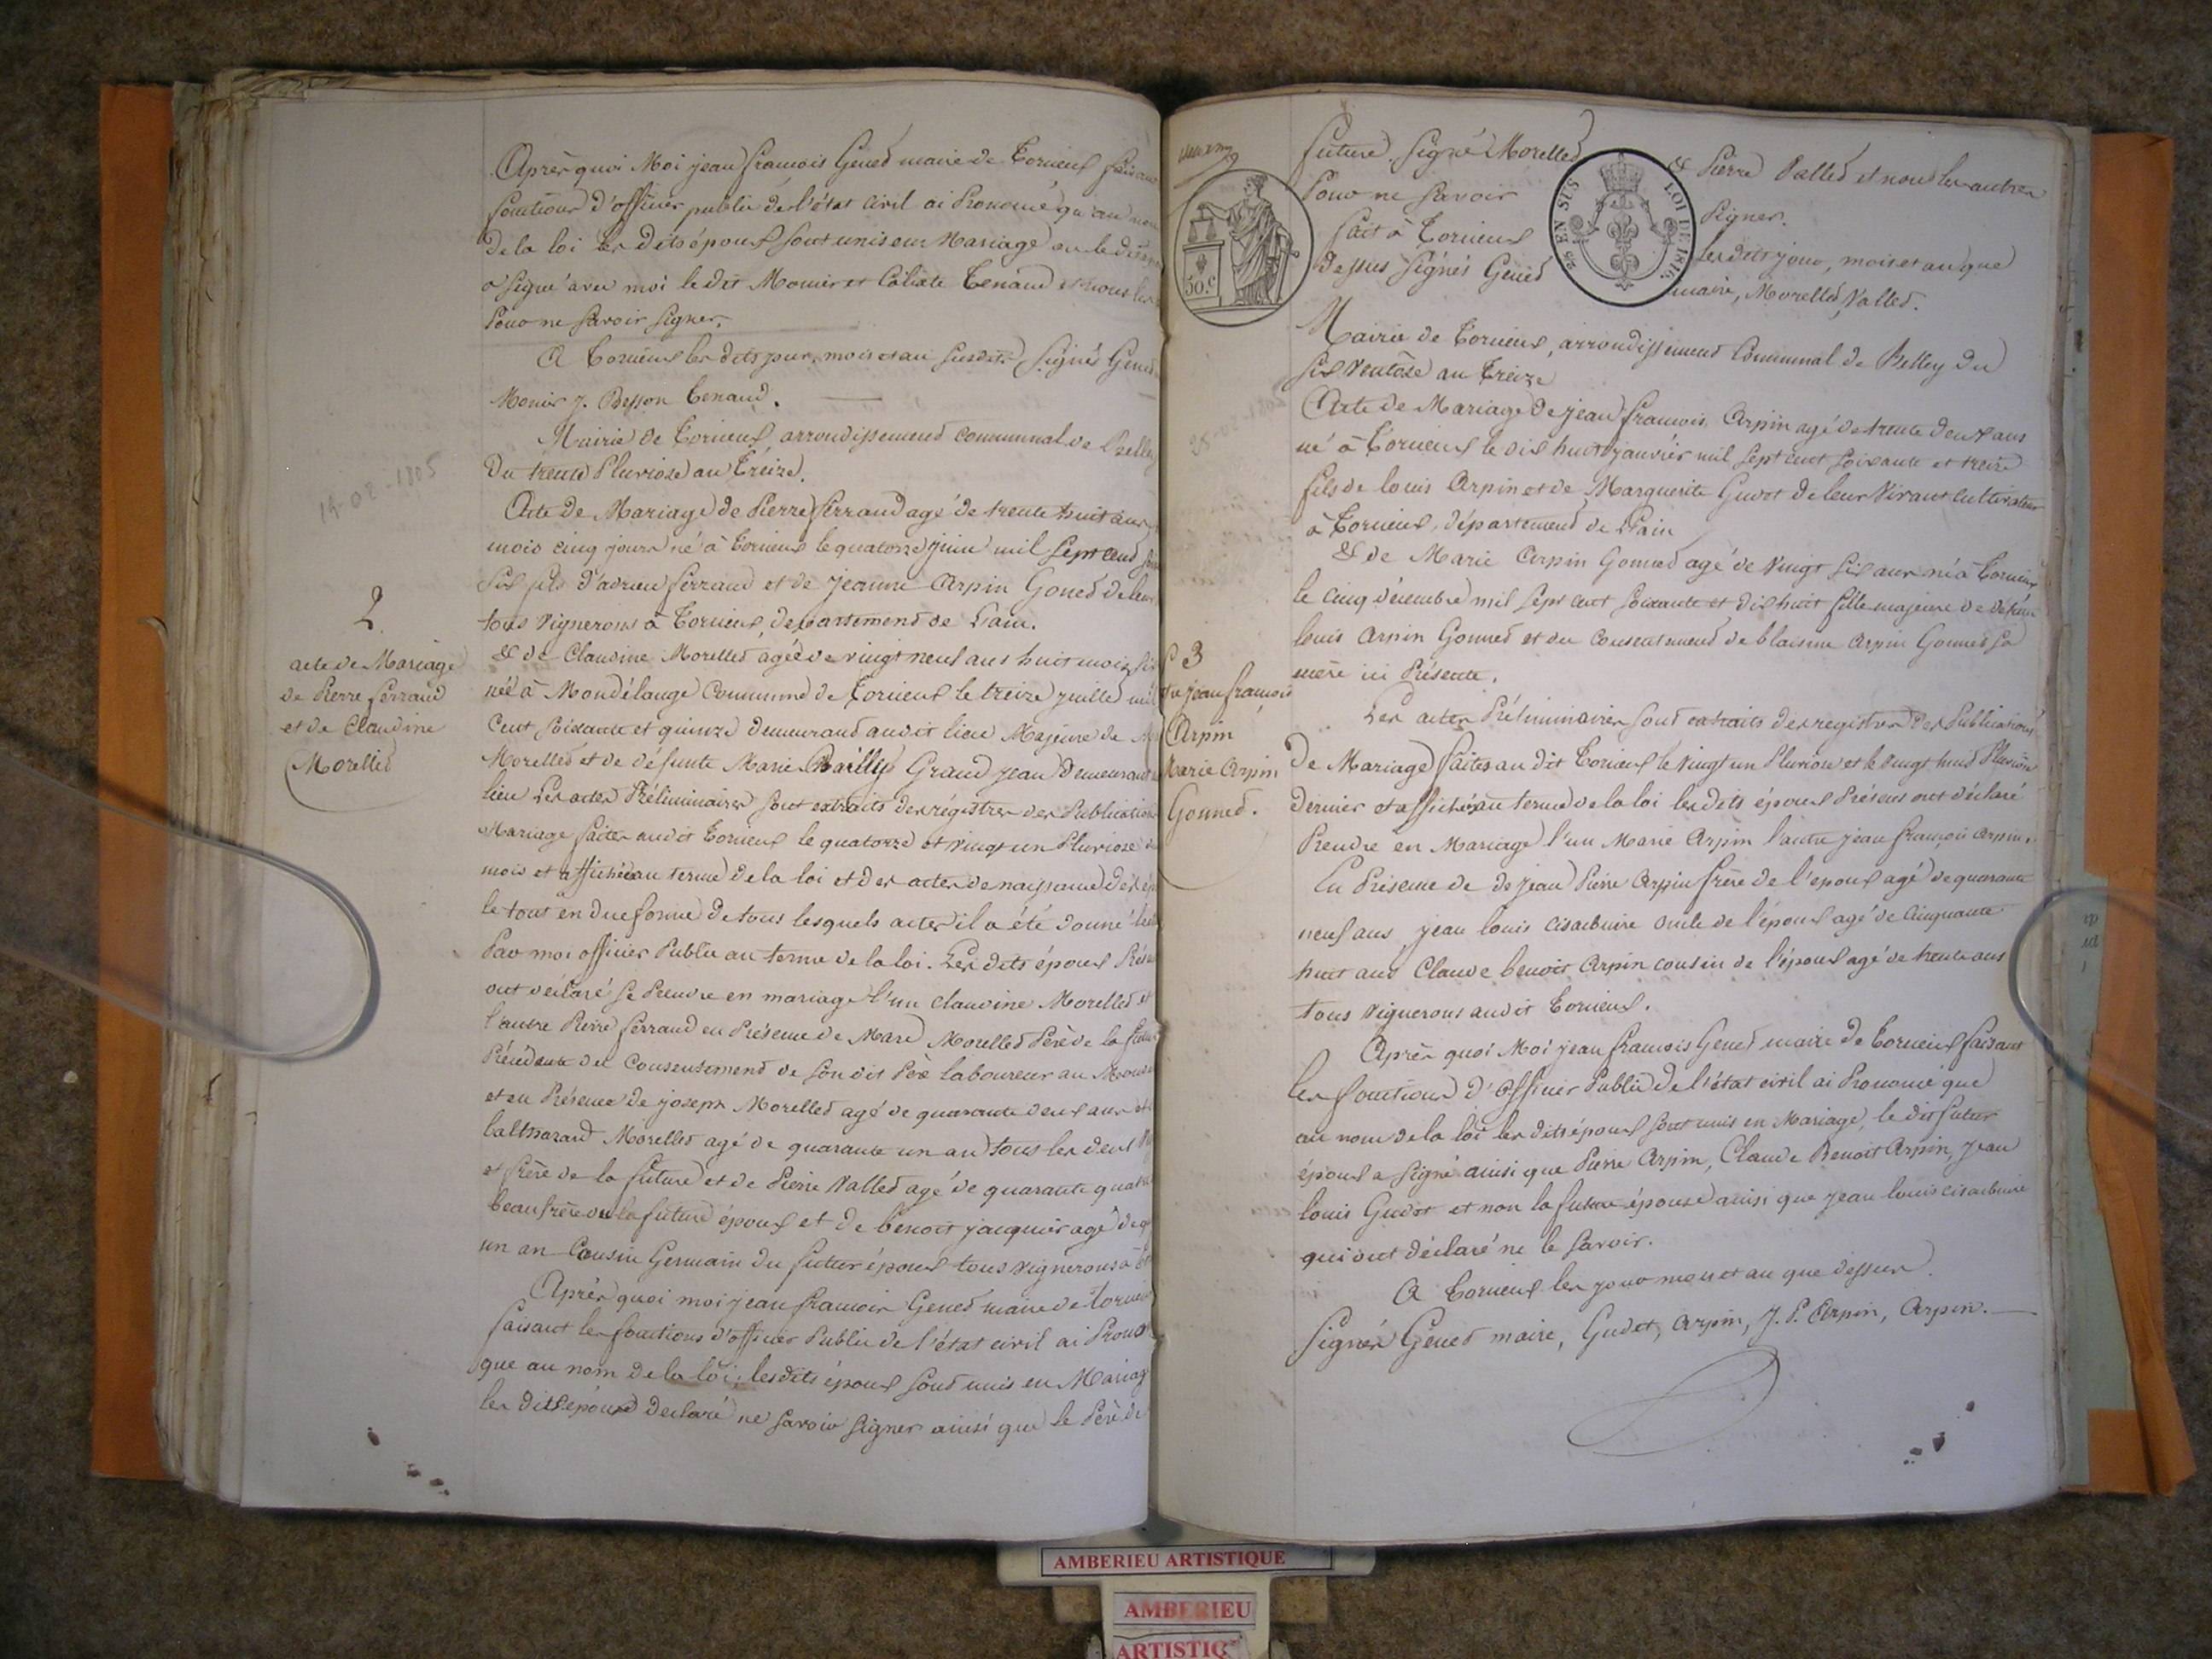 Après quoi Moi jean françois Gened maire de Torcieux faisant
fonctions d'officier public de l'état civil ai Prononcé qu'au nom
de la loi les dits époux sont unis en Mariage
a signé avec moi le dit Monier et Tenand
Pour ne savoir signer.
A Torcieux les dits jour, mois et an susdits Signés Gened
Monier J. Besson Tenand.
Mairie de Torcieux arrondissement communal de Belley
Du trente Pluviose an Treize.
19-02-1805
2
acte de Mariage
de Pierre ferrand
et de Claudine
Morelled
Acte de Mariage de Pierre ferrand agé de trente huit ans
mois cinq jours né à Torcieux le quatorze juin mil sept cent
six fils d'adrien ferrand et de jeanne Arpin Goned de leur
tous vignerons à Torcieux, département de L'ain.
& de Claudine Morelled agée de vingt neuf ans huit mois six
née à Mondélange Commune de Torcieux le treize juilled mil
Cent soixante et quinze demeurand audit lieu Majeure de
Morelled et de défunte Marie Bailly Grand jean demeurant
lieu Les actes Préliminaires sont extraits des régistres des Publications
Mariage faites audit Torcieux le quatorze et vingt un Pluviose
mois et affichées au terme de la loi et des actes de naissance des
le tout en due forme de tous lesquels actes il a été donné
Par moi officier Public au terme de la loi. Les dits époux
ont déclaré se Prendre en mariage l'un Claudine Morelled et
l'autre Pierre ferrand en Présence de Marc Morelled Père de la
Précédente del Consentemend de son dit Père laboureur au
et en Présence de joseph Morelled agé de quarante deux ans et
balthazard Morelled agé de quarante un an tous les deux
et frère de la future et de Pierre Valled agé de quarante quatre
beaufrère de la future époux et de benoit jacquier agé de
un an Cousin Germain du futur époux tous vignerons à
Après quoi moi jean françois Gened maire de torcieux
faisant les fonctions d'officier Public de l'état civil ai
que au nom de la loi, les dits époux sond unis en Mariage
les dits époux declaré ne savoir signer ainsi que le Père de
future Signé Morelled & Pierre Valled et nous les autres
Pour ne savoir Signer.
fait à Torcieux les dits jour, mois et an que
dessus Signés Gened maire, Morelled, Valled.
50.C
25 EN SUS
LOI DE 1816
Mairie de Torcieux, arrondissemend Communal de Belley Du
six Ventôse an Treize
3
de jean françois
Arpin
Marie Arpin
Gonned.
Acte de Mariage de jean françois Arpin agé de trente deux ans
né à Torcieux le dix huit janvier mil sept cent soixante et treize
fils de louis Arpin et de Marguerite Gudot de leur Vivant cultivateur
à Torcieux, départemend de l'ain
& de Marie Arpin Gonned agé de Vingt six ans né à Torcieux
le cinq décembre mil sept cent soixante et dix huit fille majeure de défunt
louis Arpin Gonned et du consentemend de Arpin Gonned sa
mère ici Présente.
Les actes Préliminaires sond extraits des registres des Publications
De Mariage faites au dit Torcieux le vingt un Pluviose et le vingt huid Pluviôse
dernier et affichées au terme de la loi les dits époux Présens ont déclaré
Prendre en Mariage l'un Marie Arpin l'autre jean françois Arpin.
En Présence de de jean Pierre Arpin frère de l'epoux agé de quarante
neuf ans, jean louis oncle de l'époux agé de Cinquante
huit ans Claude benoit Arpin cousin de l'époux agé de trente ans
tous vignerons audit Torcieux.
Après quoi Moi jean françois Gened maire de Torcieux faisant
les fonctions d'officier Public de l'état civil ai Prononcé que
au nom de la loi les dits époux sont unis en Mariage, le dit futur
époux a signé ainsi que Pierre Arpin, Claude Benoit Arpin, jean
louis Gudot et non la future épouse ainsi que jean louis
qui ont déclaré ne le savoir.
A Torcieux les jour mois et an que dessus.
Signés Gened maire, Gudot, Arpin, J. P. Arpin, Arpin.
AMBERIEU ARTISTIQUE
AMBERIEU
ARTISTIQ